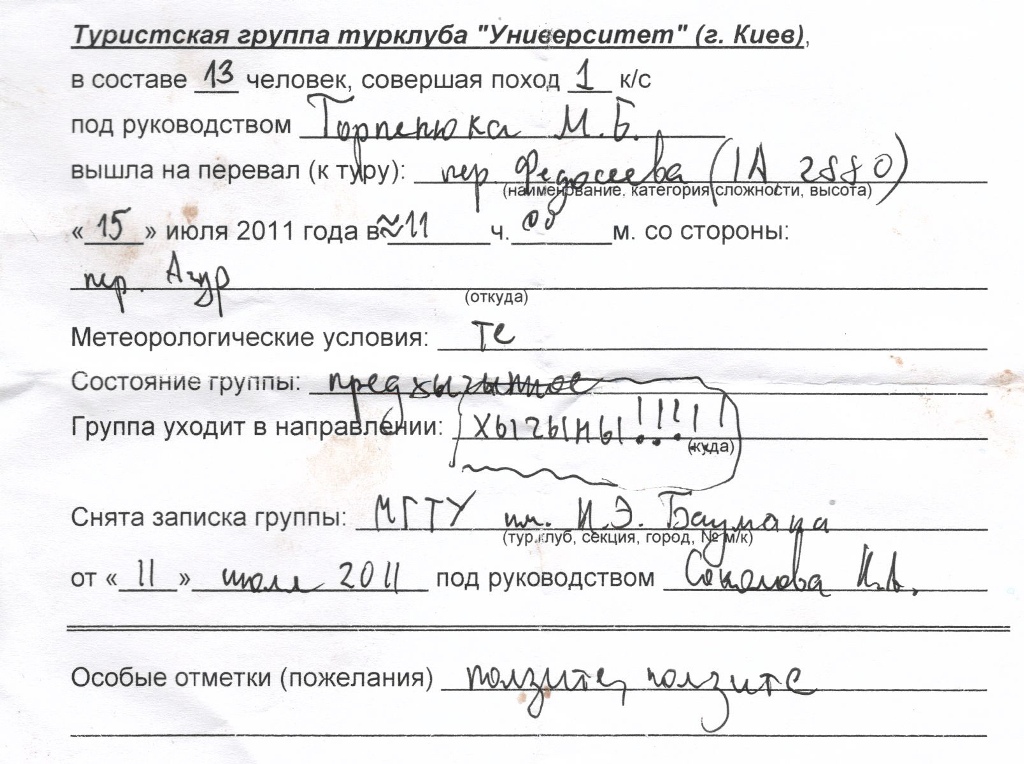 Туристская группа турклуба "Университет" (г. Киев),
в составе 13 человек, совершая поход 1 к/с
под руководством Торпенюка М.Б.
вышла на перевал (к туру): пер. Федосеева (1А 2880)
(наименование, категория сложности, высота)
«15» июля 2011 года в ≈11 ч. 00 м. со стороны:
пер. Ацур
(откуда)
Метеорологические условия:
Состояние группы: предхычынное
Группа уходит в направлении: ХЫЧЫНЫ!!!!!
(куда)
Снята записка группы: МГТУ им. Н.Э. Баумана
(тур.клуб, секция, город, № м/к)
от «11» июля 2011 под руководством Соколова
Особые отметки (пожелания) ползите, ползите